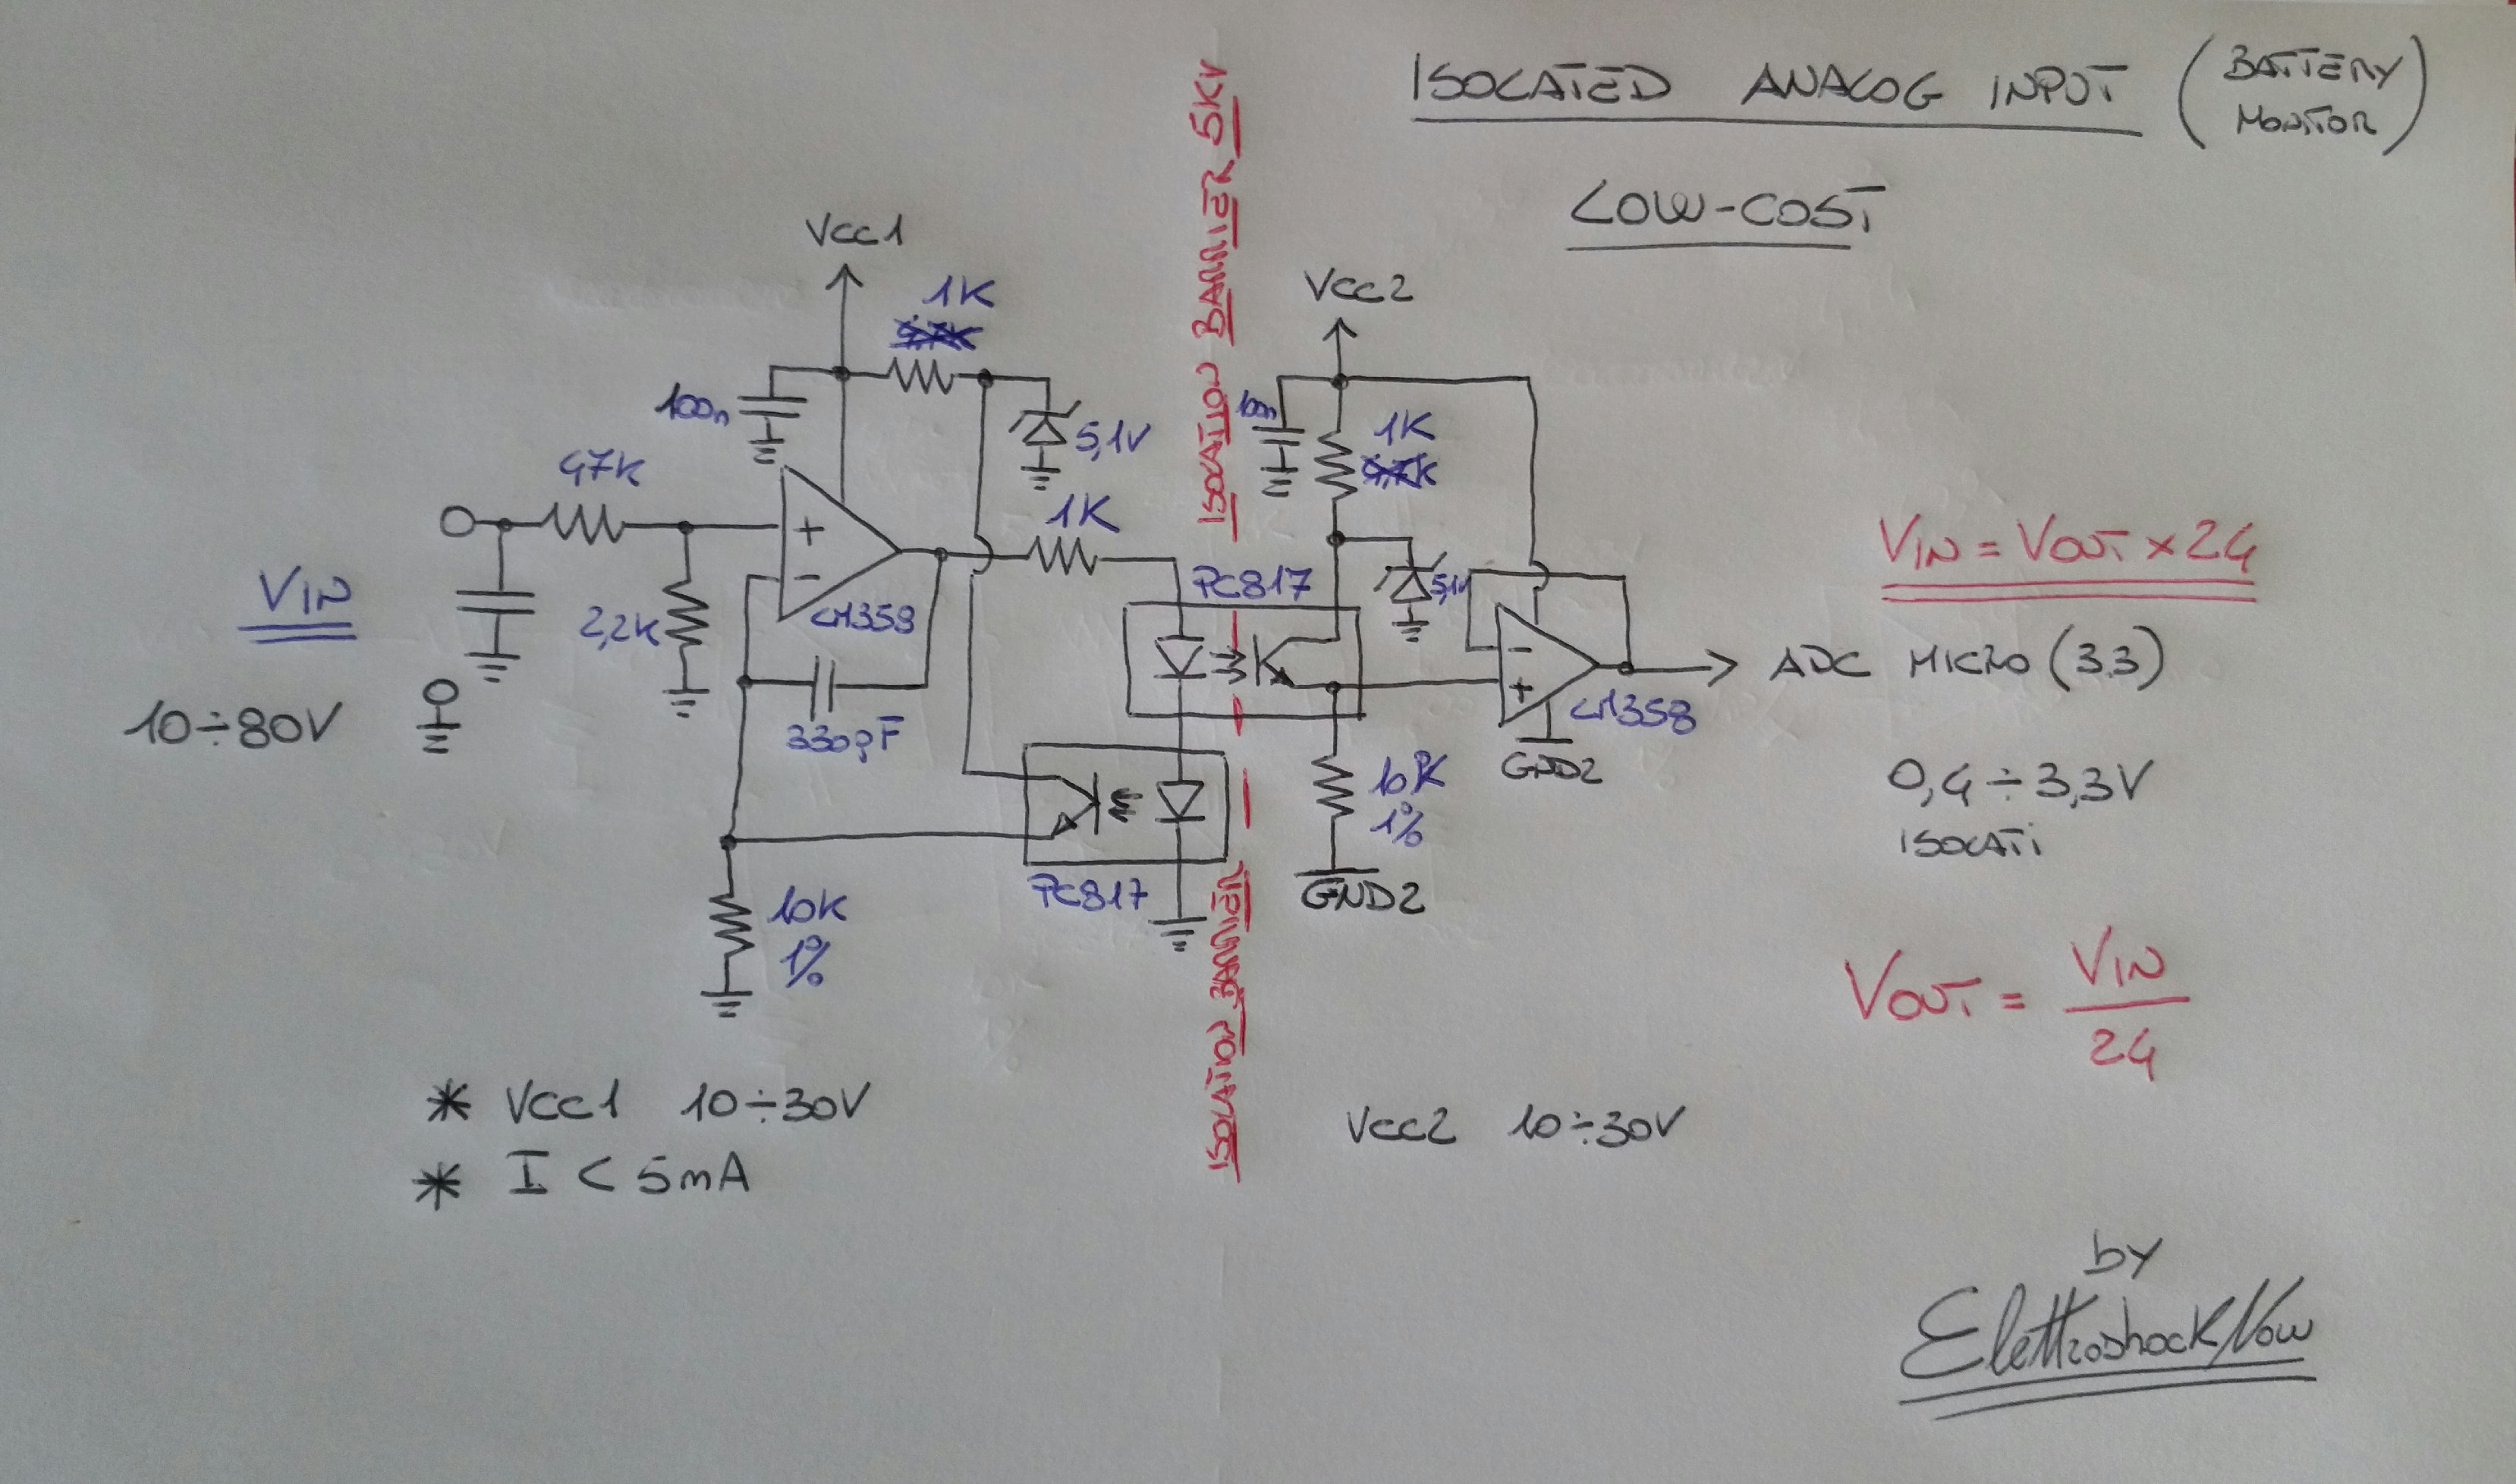 ISOLATED ANALOG INPUT (BATTERY
MONITOR)
LOW-COST
ISOLATION BARRIER 5KV
Vcc1
1K
100n
5,1V
47K
1K
+
-
LM358
VIN
2,2K
10÷80V
330pF
PC817
PC817
10K
1%
Vcc2
100n
1K
5,1V
-
+
LM358
GND2
10K
1%
GND2
VIN = VOUT x 24
ADC MICRO (3.3)
0,4 ÷ 3,3V
ISOLATI
VOUT = VIN
24
ISOLATION BARRIER
* Vcc1 10÷30V
* I < 5mA
Vcc2 10÷30V
by
ElettroshockNow